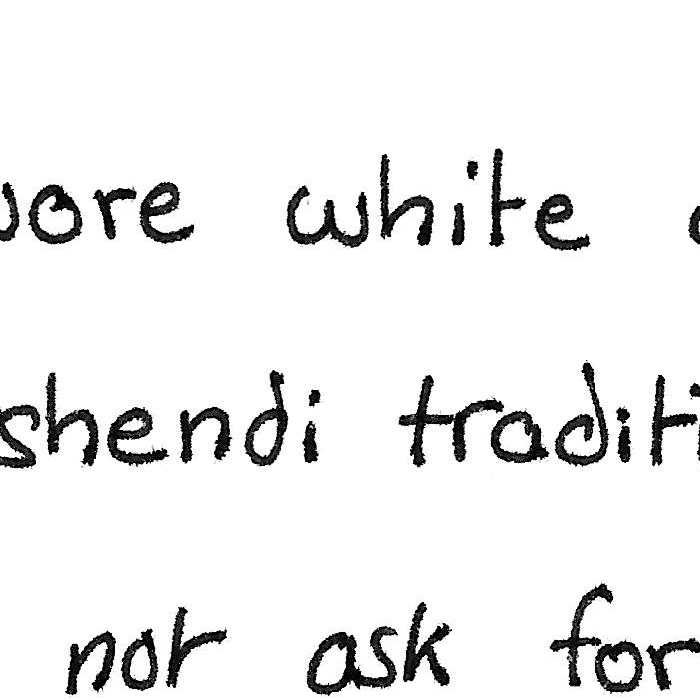 wore white
shendi traditi
not ask for